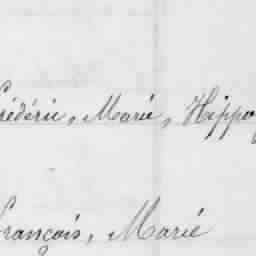 Frédéric, Marie, Hippo
François, Marie